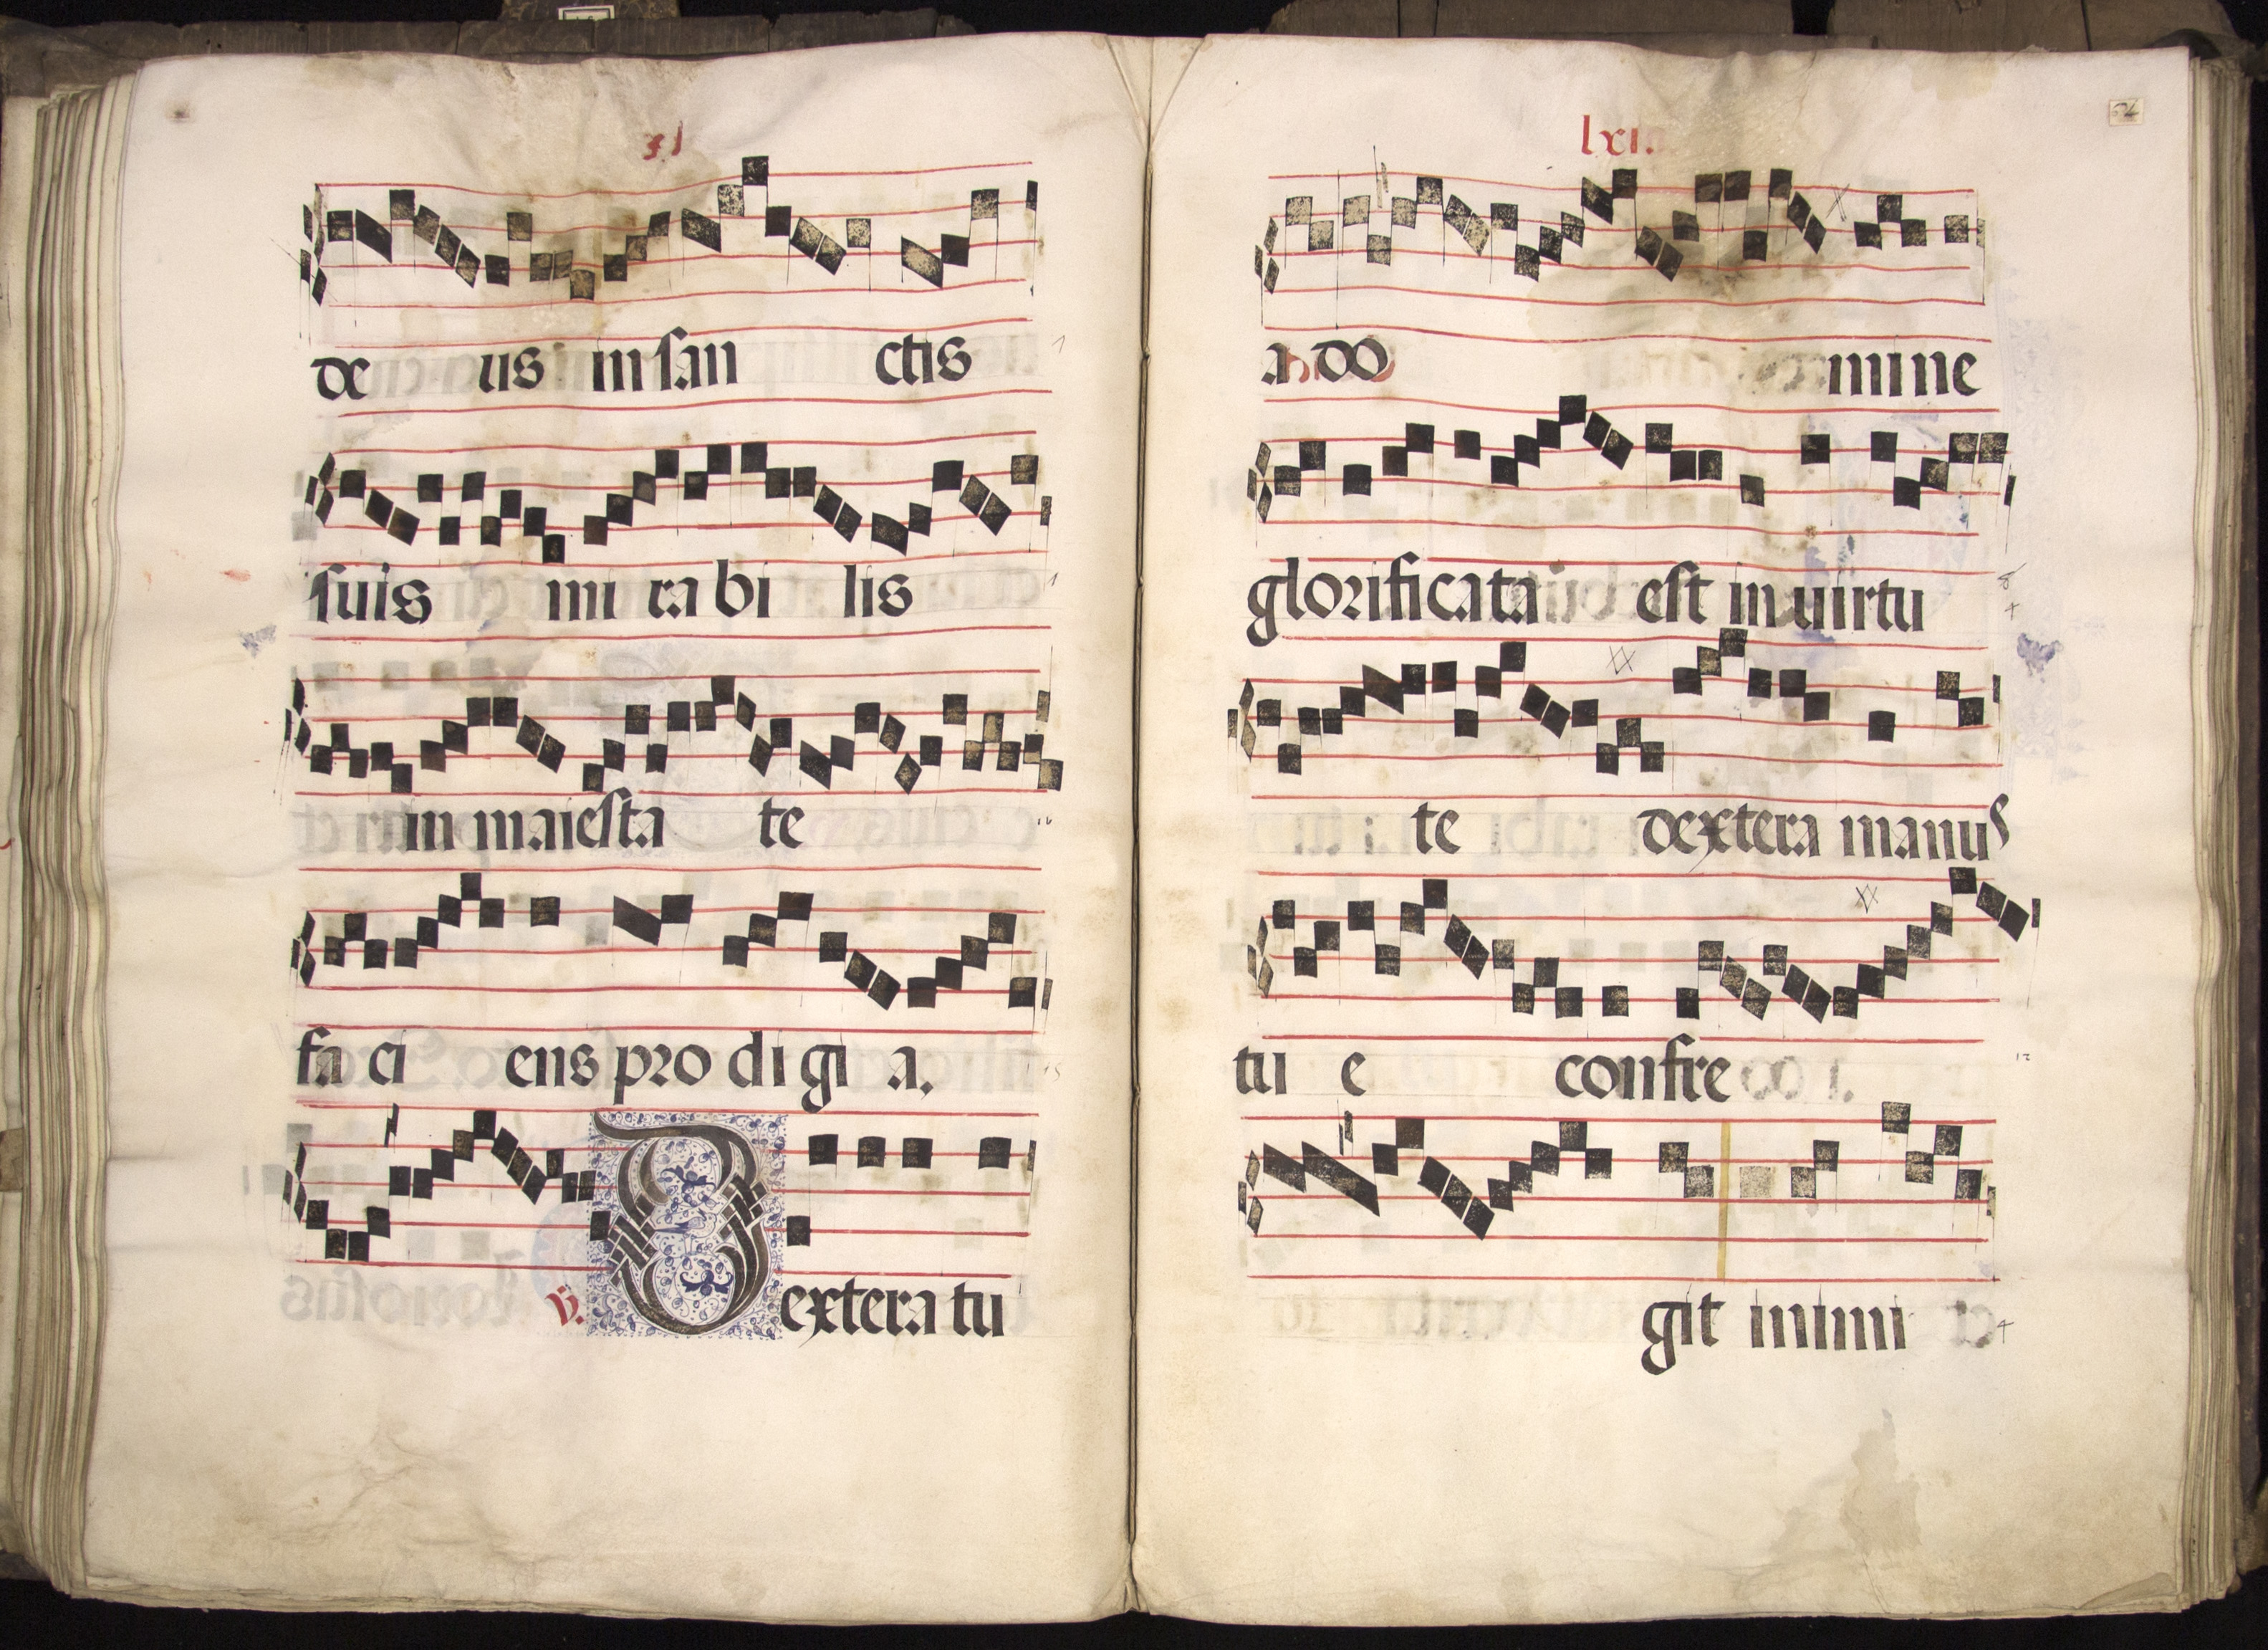 de us in san ctis
suis mi ra bi lis
in maiesta te
fa ci ens pro di gi a.
v. Dextera tu
lxi.
a do mine
glorificata est in uirtu
te dextera manus
tu e confre
git inimi